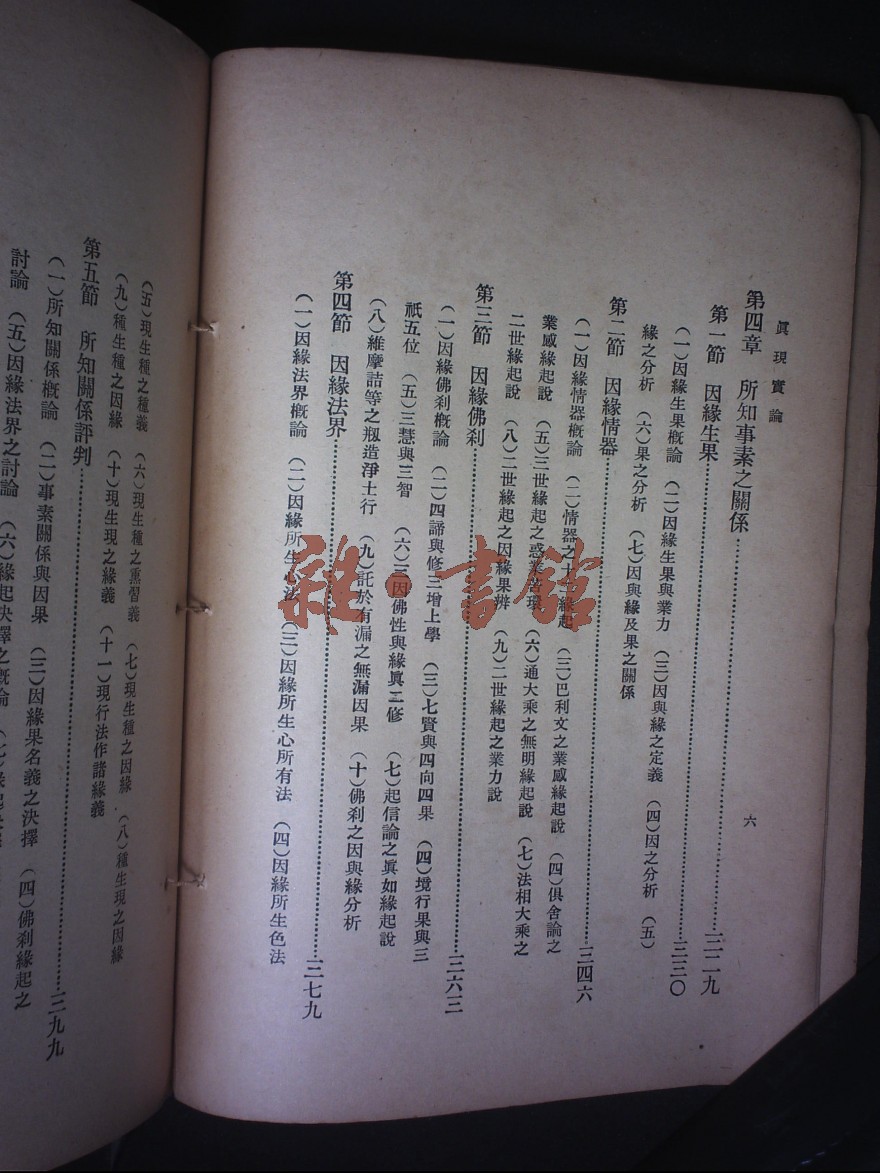 眞現實論
六
第四章　所知事素之關係…………三二九
第一節　因緣生果…………三三〇
（一）因緣生果概論　（二）因緣生果與業力　（三）因與緣之定義　（四）因之分析　（五）
緣之分析　（六）果之分析　（七）因與緣及果之關係
第二節　因緣情器…………三四六
（一）因緣情器概論　（二）情器之十二緣起　（三）巴利文之業感緣起說　（四）俱舍論之
業感緣起說　（五）三世緣起之惑業苦環　（六）通大乘之無明緣起說　（七）法相大乘之
二世緣起說　（八）二世緣起之因緣果辨　（九）二世緣起之業力說
第三節　因緣佛刹…………三六三
（一）因緣佛刹概論　（二）四諦與修三增上學　（三）七賢與四向四果　（四）境行果與三
祇五位　（五）三慧與三智　（六）三因佛性與緣眞二修　（七）起信論之眞如緣起說
（八）維摩詰等之剏造淨土行　（九）託於有漏之無漏因果　（十）佛刹之因與緣分析
第四節　因緣法界…………三七九
（一）因緣法界概論　（二）因緣所生心法　（三）因緣所生心所有法　（四）因緣所生色法
（五）現生種之種義　（六）現生種之熏習義　（七）現生種之因緣　（八）種生現之因緣
（九）種生種之因緣　（十）現生現之緣義　（十一）現行法作諸緣義
第五節　所知關係評判…………三九九
（一）所知關係概論　（二）事素關係與因果　（三）因緣果名義之決擇　（四）佛刹緣起之
討論　（五）因緣法界之討論　（六）緣起決擇之概論
雜·書館